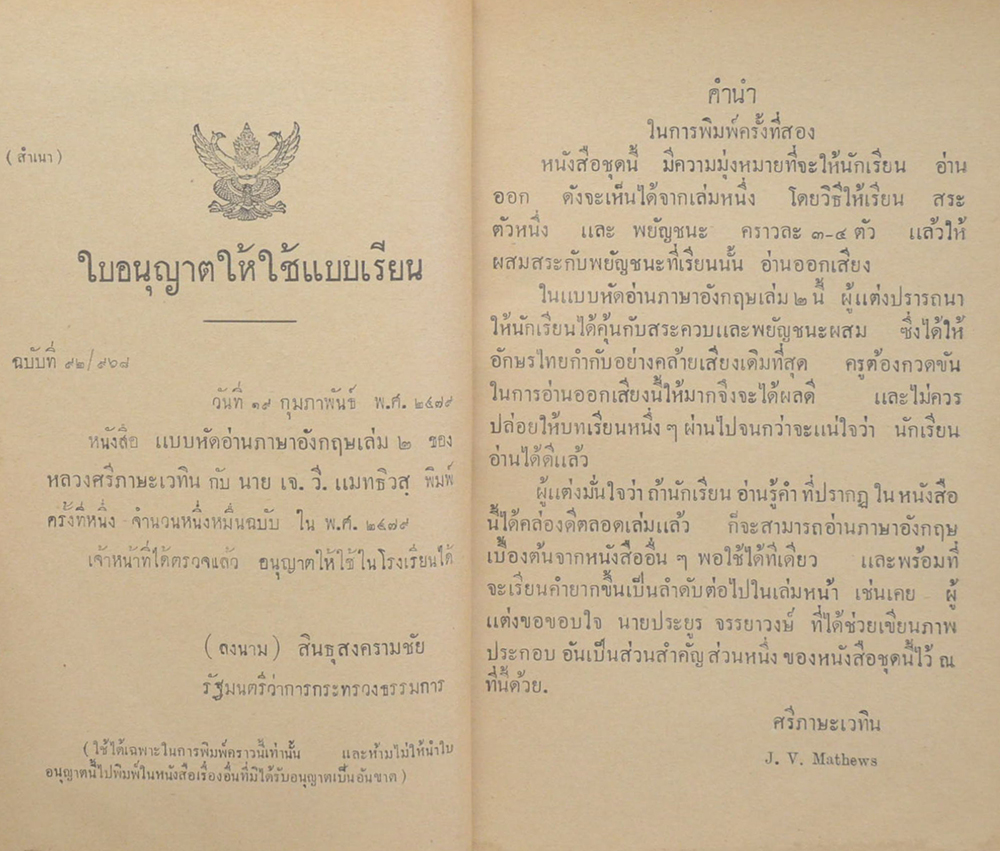 (สำเนา)
ใบอนุญาตให้ใช้แบบเรียน
ฉบับที่ ๙๒/๙๖๘
วันที่ ๑๙ กุมภาพันธ์ พ.ศ. ๒๔๗๙
หนังสือ แบบหัดอ่านภาษาอังกฤษเล่ม ๒ ของ
หลวงศรีภาษะเวทิน กับ นาย เจ. วี. แมทธิวสฺ พิมพ์
ครั้งที่หนึ่ง จำนวนหนึ่งหมื่นฉบับ ใน พ.ศ. ๒๔๗๙
เจ้าหน้าที่ได้ตรวจแล้ว อนุญาตให้ใช้ในโรงเรียนได้
(ลงนาม) สินธุสงครามชัย
รัฐมนตรีว่าการกระทรวงธรรมการ
(ใช้ได้เฉพาะในการพิมพ์คราวนี้เท่านั้น และห้ามไม่ให้นำใบ
อนุญาตนี้ไปพิมพ์ในหนังสือเรื่องอื่นที่มิได้รับอนุญาตเป็นอันขาด)
คำนำ
ในการพิมพ์ครั้งที่สอง
หนังสือชุดนี้ มีความมุ่งหมายที่จะให้นักเรียน อ่าน
ออก ดังจะเห็นได้จากเล่มหนึ่ง โดยวิธีให้เรียน สระ
ตัวหนึ่ง และ พยัญชนะ คราวละ ๓-๔ ตัว แล้วให้
ผสมสระกับพยัญชนะที่เรียนนั้น อ่านออกเสียง
ในแบบหัดอ่านภาษาอังกฤษเล่ม ๒ นี้ ผู้แต่งปรารถนา
ให้นักเรียนได้คุ้นกับสระควบและพยัญชนะผสม ซึ่งได้ให้
อักษรไทยกำกับอย่างคล้ายเสียงเดิมที่สุด ครูต้องกวดขัน
ในการอ่านออกเสียงนี้ให้มากจึงจะได้ผลดี และไม่ควร
ปล่อยให้บทเรียนหนึ่ง ๆ ผ่านไปจนกว่าจะแน่ใจว่า นักเรียน
อ่านได้ดีแล้ว
ผู้แต่งมั่นใจว่า ถ้านักเรียน อ่านรู้คำ ที่ปรากฏ ใน หนังสือ
นี้ได้คล่องดีตลอดเล่มแล้ว ก็จะสามารถอ่านภาษาอังกฤษ
เบื้องต้นจากหนังสืออื่น ๆ พอใช้ได้ทีเดียว และพร้อมที่
จะเรียนคำยากขึ้นเป็นลำดับต่อไปในเล่มหน้า เช่นเคย ผู้
แต่งขอขอบใจ นายประยูร จรรยาวงษ์ ที่ได้ช่วยเขียนภาพ
ประกอบ อันเป็นส่วนสำคัญ ส่วนหนึ่ง ของหนังสือชุดนี้ไว้ ณ
ที่นี้ด้วย.
ศรีภาษะเวทิน
J. V. Mathews